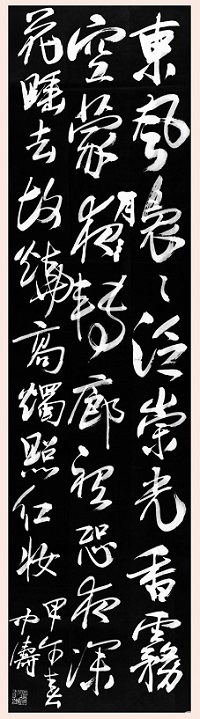 東風裊〻泛崇光香霧
空蒙夜月轉廊祇恐夜深
花睡去故燒高燭照红妝
甲午春
濤